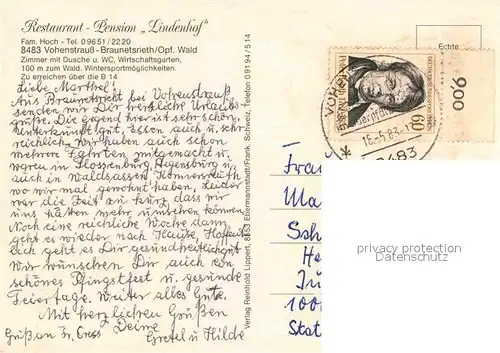 Restaurant - Pension „Lindenhof"
Fam. Hoch - Tel. 0 96 51 / 22 20
8483 Vohenstrauß - Braunetsrieth/Opf. Wald
Zimmer mit Dusche u. WC, Wirtschaftsgarten,
100 m zum Wald. Wintersportmöglichkeiten.
Zu erreichen über die B 14
Liebe Marthel!
Aus Braunetsriet bei Vohenstrauß
senden wir Dir herzliche Urlaubs
grüße. Die Gegend hier ist sehr schön,
Unterkunft gut, Essen auch u. sehr
reichlich. Wir haben auch schon
mehrere Fahrten mitgemacht u.
waren in Flossenbürg, Regensburg u.
auch in Waldsassen, Konnersreuth
wo wir mal gewohnt haben. Leider
war die Zeit zu kurz dass wir
uns hätten mehr umsehen können.
Noch eine reichliche Woche dann
geht es wieder nach Hause. Hoffent
lich geht es Dir gesundheitlich gut.
Wir wünschen Dir auch ein
schönes Pfingstfest u. gesunde
Feiertage. Weiter alles Gute.
Mit herzlichen Grüßen
Deine
Gretel u Hilde
Gruß an Fr.
Verlag Reinhold Lippert, 8553 Ebermannstadt/Fränk. Schweiz, Telefon 0 91 94 / 5 14
Echte
900
60
16.-5.83
8483
Frau
Ma
Sch
He
100
Stat
privacy protection
Datenschutz